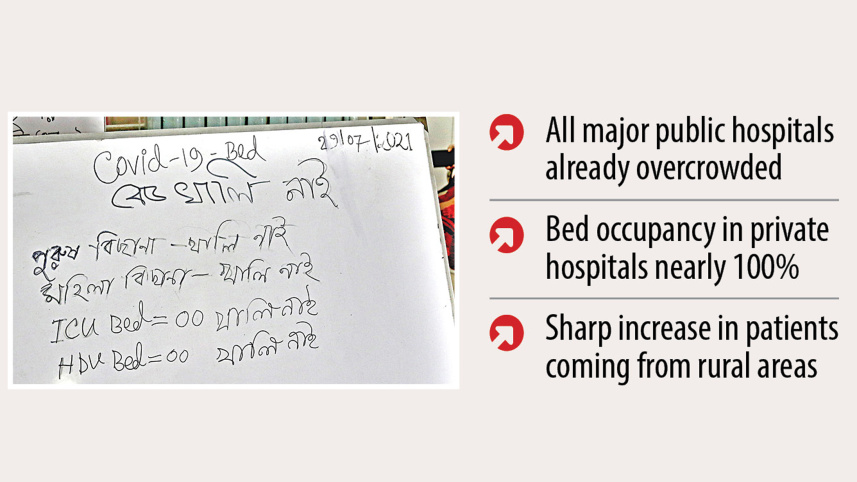 29/07/2021
Covid-19-Bed
বেড খালি নাই
পুরুষ বিছানা - খালি নাই
মহিলা বিছানা - খালি নাই
ICU Bed = 00 খালি নাই
HDU Bed = 00 খালি নাই
All major public hospitals
already overcrowded
Bed occupancy in private
hospitals nearly 100%
Sharp increase in patients
coming from rural areas